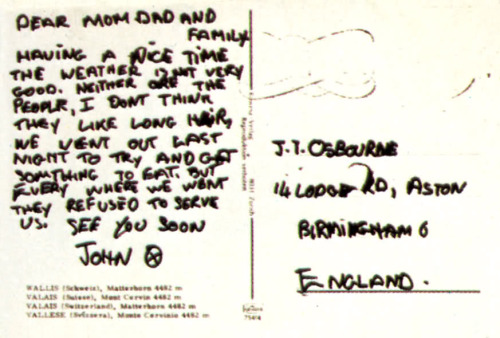 DEAR MOM DAD AND
FAMILY
HAVING A NICE TIME
THE WEATHER ISNT VERY
GOOD. NEITHER ARE THE
PEOPLE, I DONT THINK
THEY LIKE LONG HAIR,
WE WENT OUT LAST
NIGHT TO TRY AND GET
SOMTHING TO EAT. BUT
EVERY WHERE WE WENT
THEY REFUSED TO SERVE
US. SEE YOU SOON
JOHN
WALLIS (Schweiz), Matterhorn 4482 m
VALAIS (Suisse), Mont Cervin 4482 m
VALAIS (Switzerland), Matterhorn 4482 m
VALLESE (Svizzera), Monte Cervinio 4482 m
J.T. OSBOURNE
14 LODGE RD, ASTON
BIRMINGHAM 6
ENGLAND.